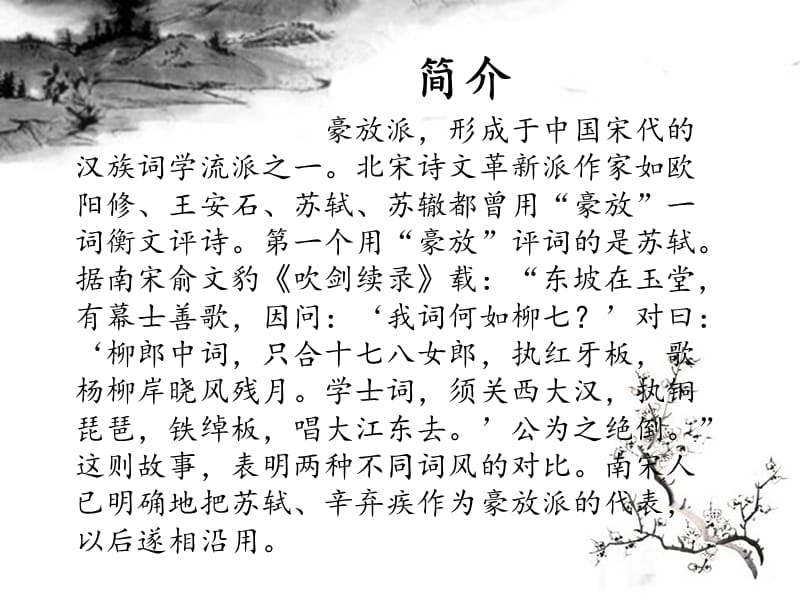 简介
豪放派，形成于中国宋代的
汉族词学流派之一。北宋诗文革新派作家如欧
阳修、王安石、苏轼、苏辙都曾用“豪放”一
词衡文评诗。第一个用“豪放”评词的是苏轼。
据南宋俞文豹《吹剑续录》载：“东坡在玉堂，
有幕士善歌，因问：‘我词何如柳七？’对曰：
‘柳郎中词，只合十七八女郎，执红牙板，歌
杨柳岸晓风残月。学士词，须关西大汉，执铜
琵琶，铁绰板，唱大江东去。’公为之绝倒。”
这则故事，表明两种不同词风的对比。南宋人
已明确地把苏轼、辛弃疾作为豪放派的代表，
以后遂相沿用。